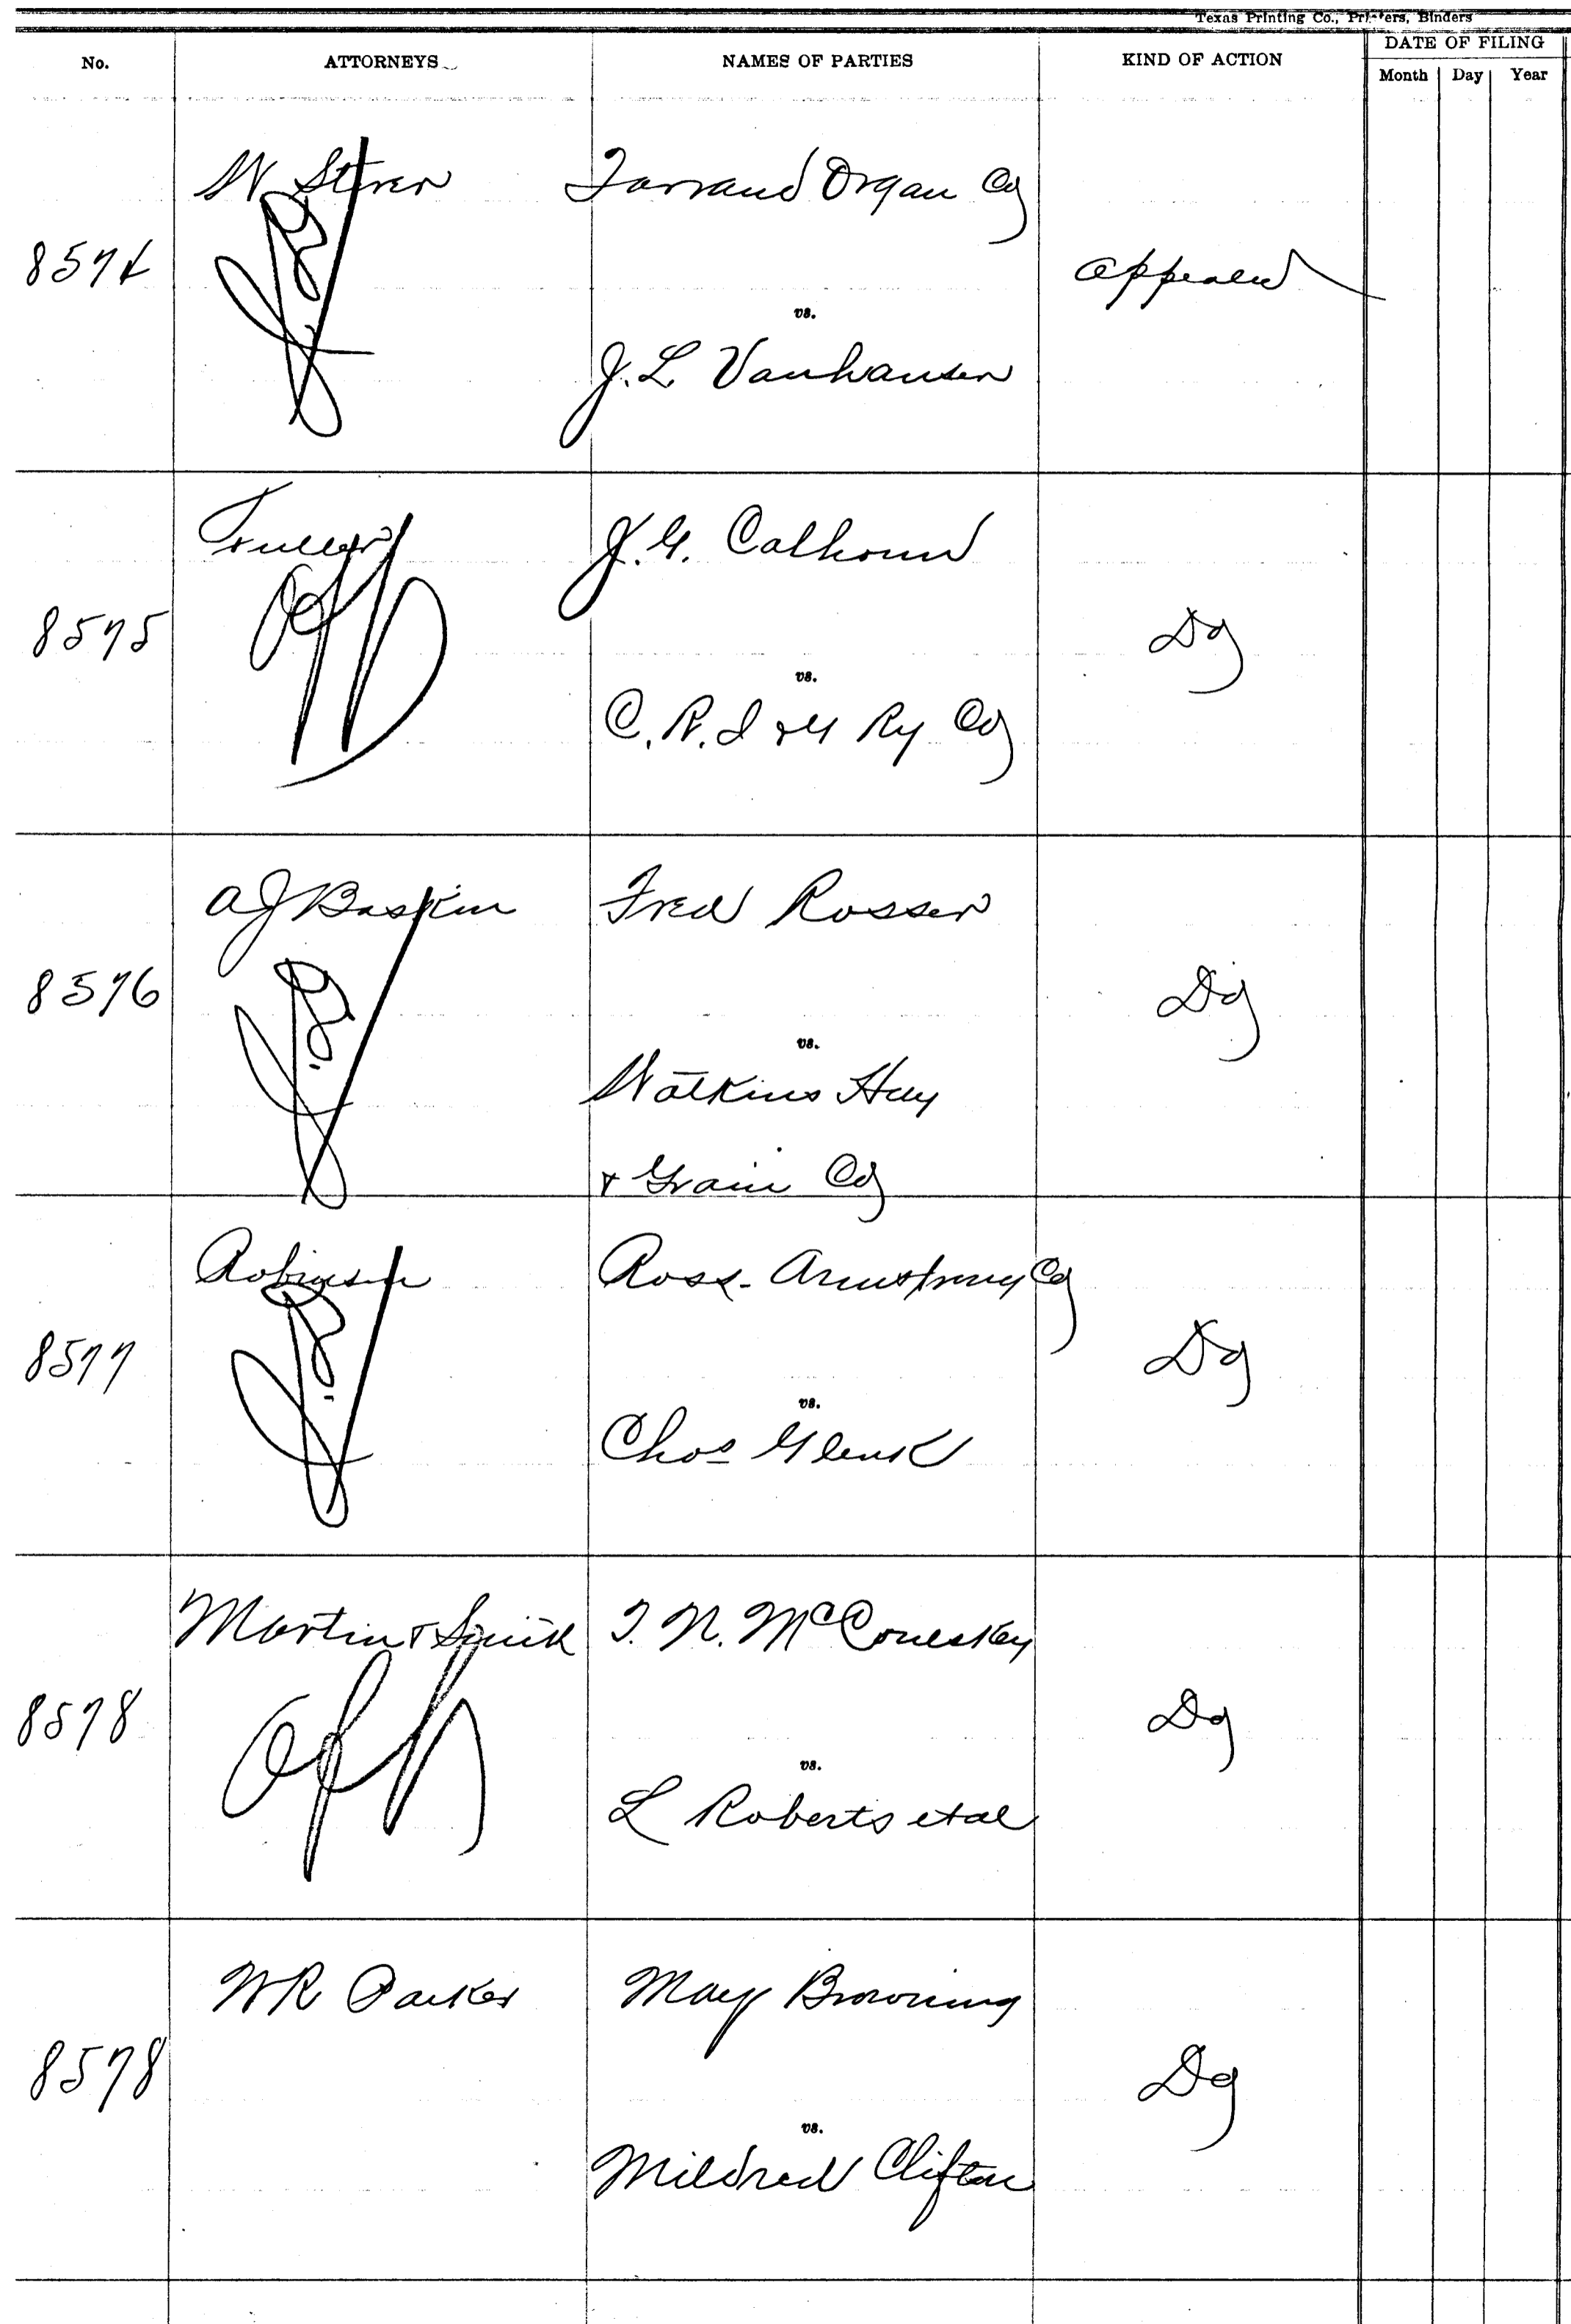 Texas Printing Co., Printers, Binders
No. ATTORNEYS NAMES OF PARTIES KIND OF ACTION DATE OF FILING
Month Day Year
8574
Farrand Organ Co
vs.
J. L. Vanhausen
Appealed
8575
Fuller
J. G. Calhoun
vs.
C. R. I & G Ry Co
Do
8576
A J Baskin
Fred Rosser
vs.
Watkins Hay
& Grain Co
Do
8577
Robinson
Ross-Armstrong Co
vs.
Chas Glenk
Do
8578
Martin &
T. N. McConeskey
vs.
L Roberts et al
Do
8578
W R Parker
May Browning
vs.
Mildred Clifton
Do